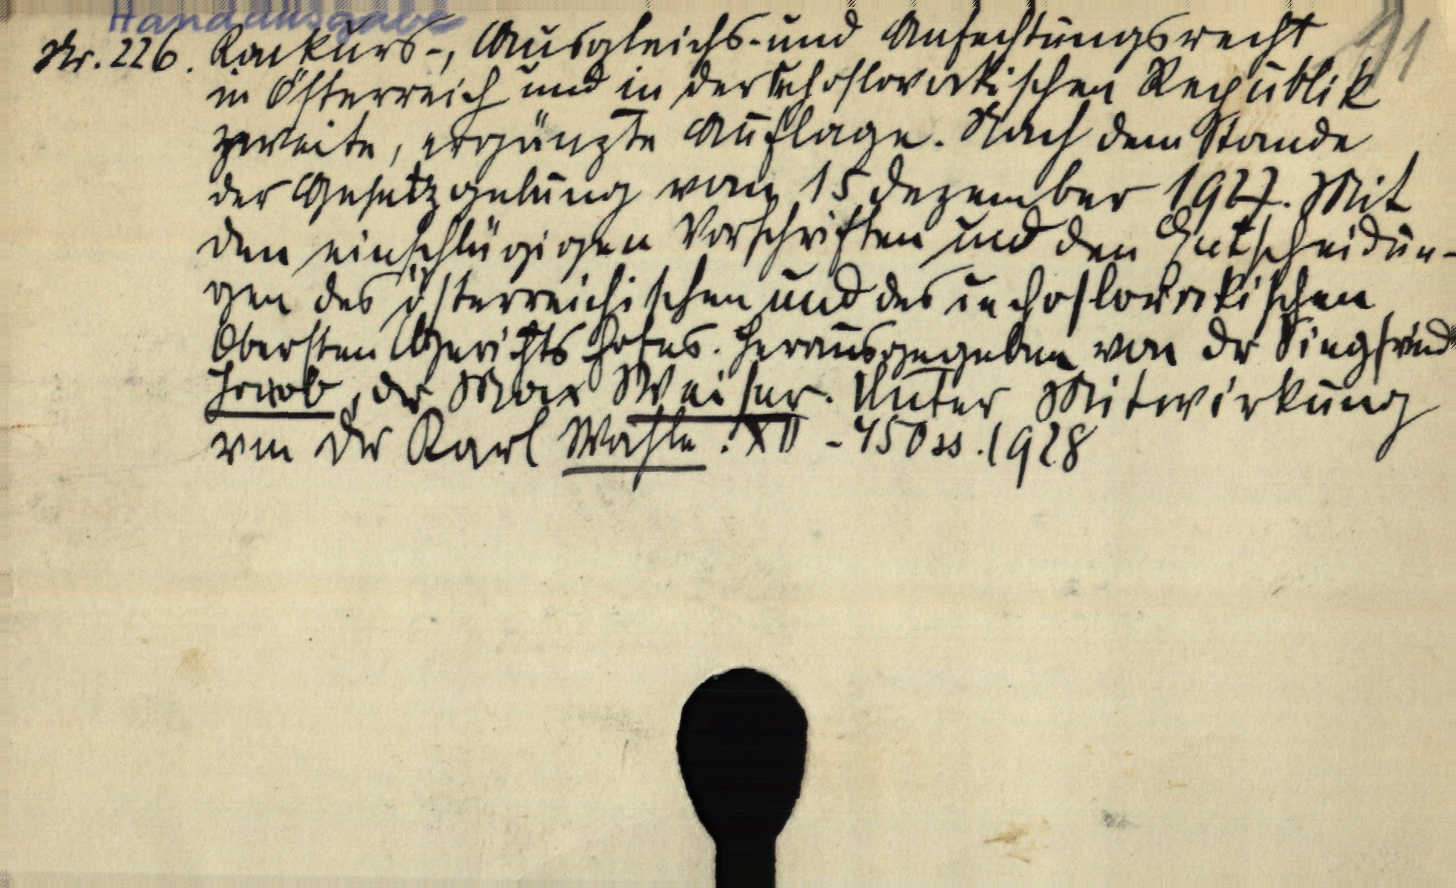 Handausgabe
Nr. 226. Konkurs-, Ausgleichs- und Anfechtungsrecht
in Österreich und in der čechoslovakischen Republik
zweite, ergänzte Auflage. Nach dem Stande
der Gesetzgebung vom 15 Dezember 1927. Mit
den einschlägigen Vorschriften und den Entscheidun-
gen des österreichischen und des čechoslovakischen
Obersten Gerichtshofes. Herausgegeben von Dr Siegfried
Jacob, Dr Max Weiser. Unter Mitwirkung
von Dr Karl Wahle. XII - 450 ss. 1928